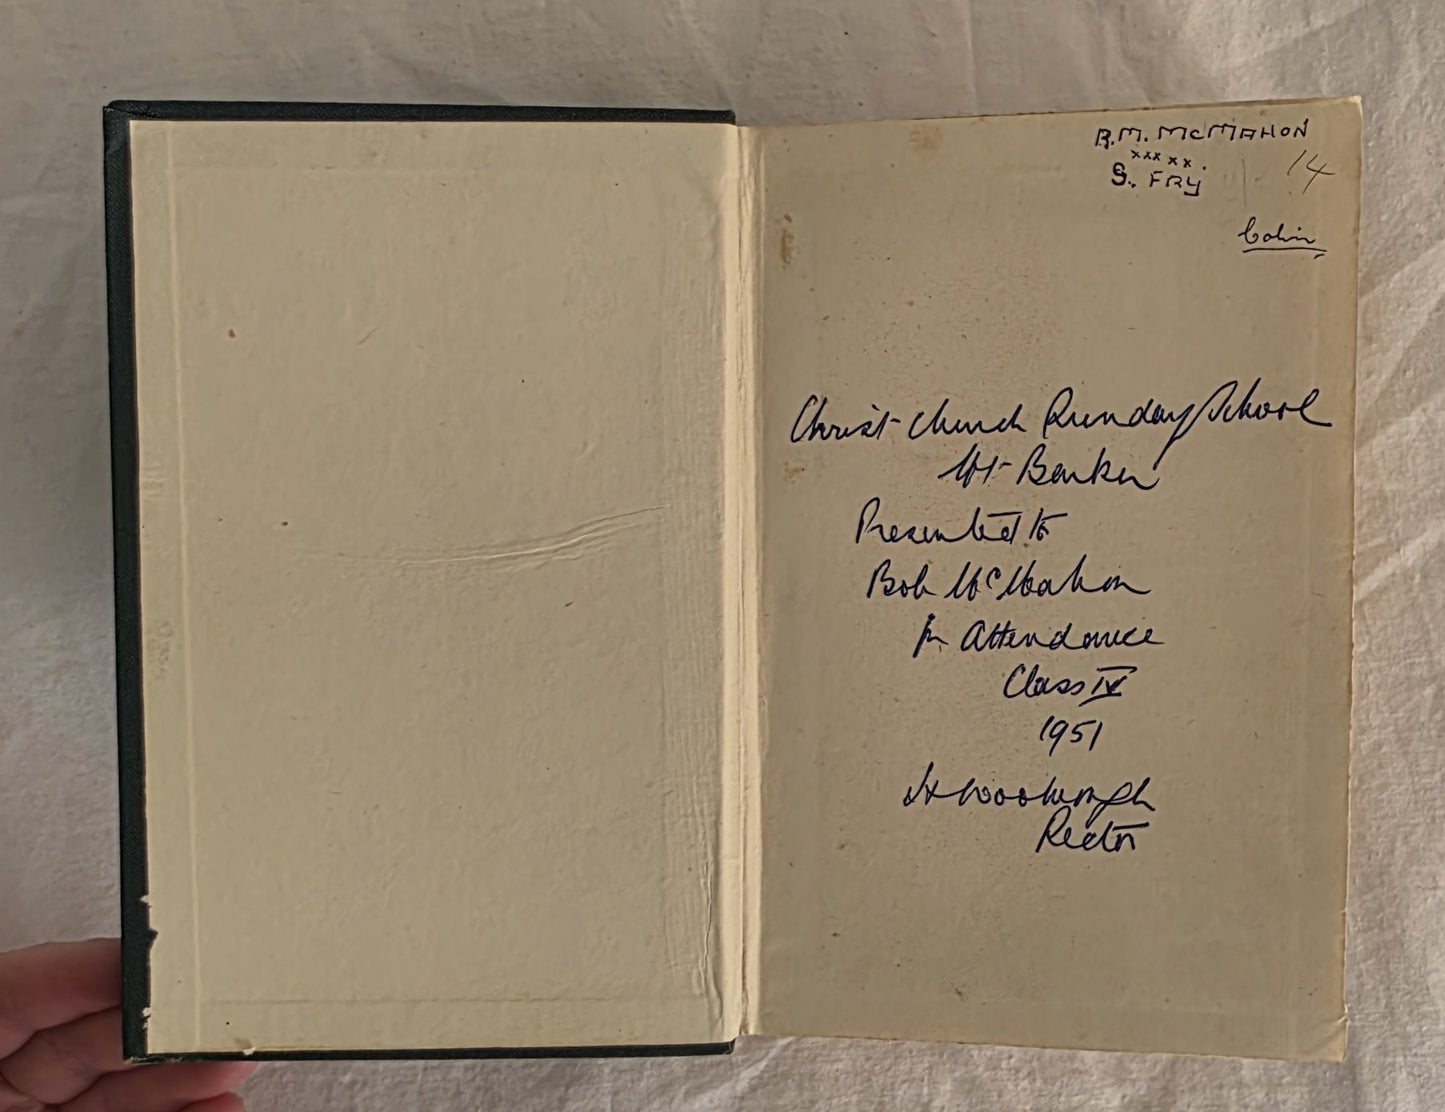 R.M. McMAHON
xxxxx.
S. FRY
14
Colin
Christ Church Sunday School
Mt Barker
Presented to
Bob McMahon
for Attendance
Class IV
1951
Rector